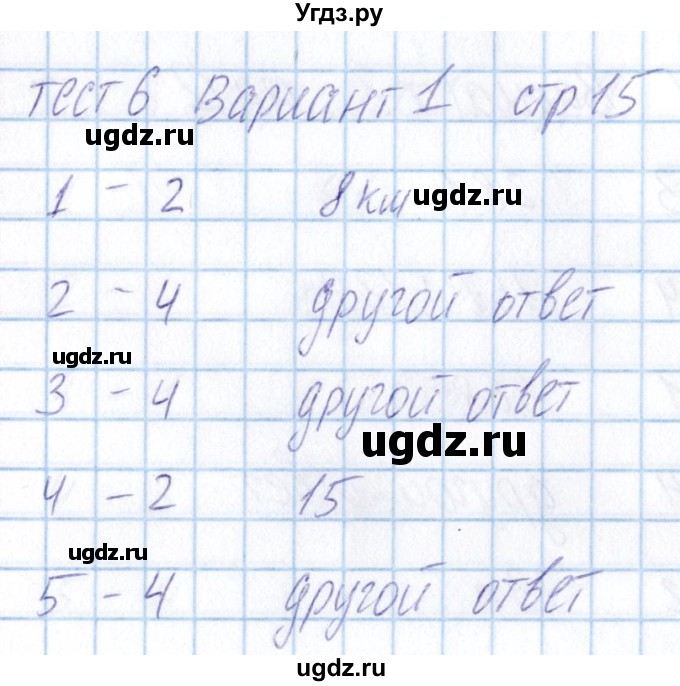 Угдз.ру
тест 6 Вариант 1 стр 15
ugdz.ru
1 - 2 8 км ugdz.ru
2 - 4 другой ответ
ugdz.ru
3 - 4 другой ответ
ugdz.ru
4 - 2 15
ugdz.ru
5 - 4 другой ответ
ugdz.ru